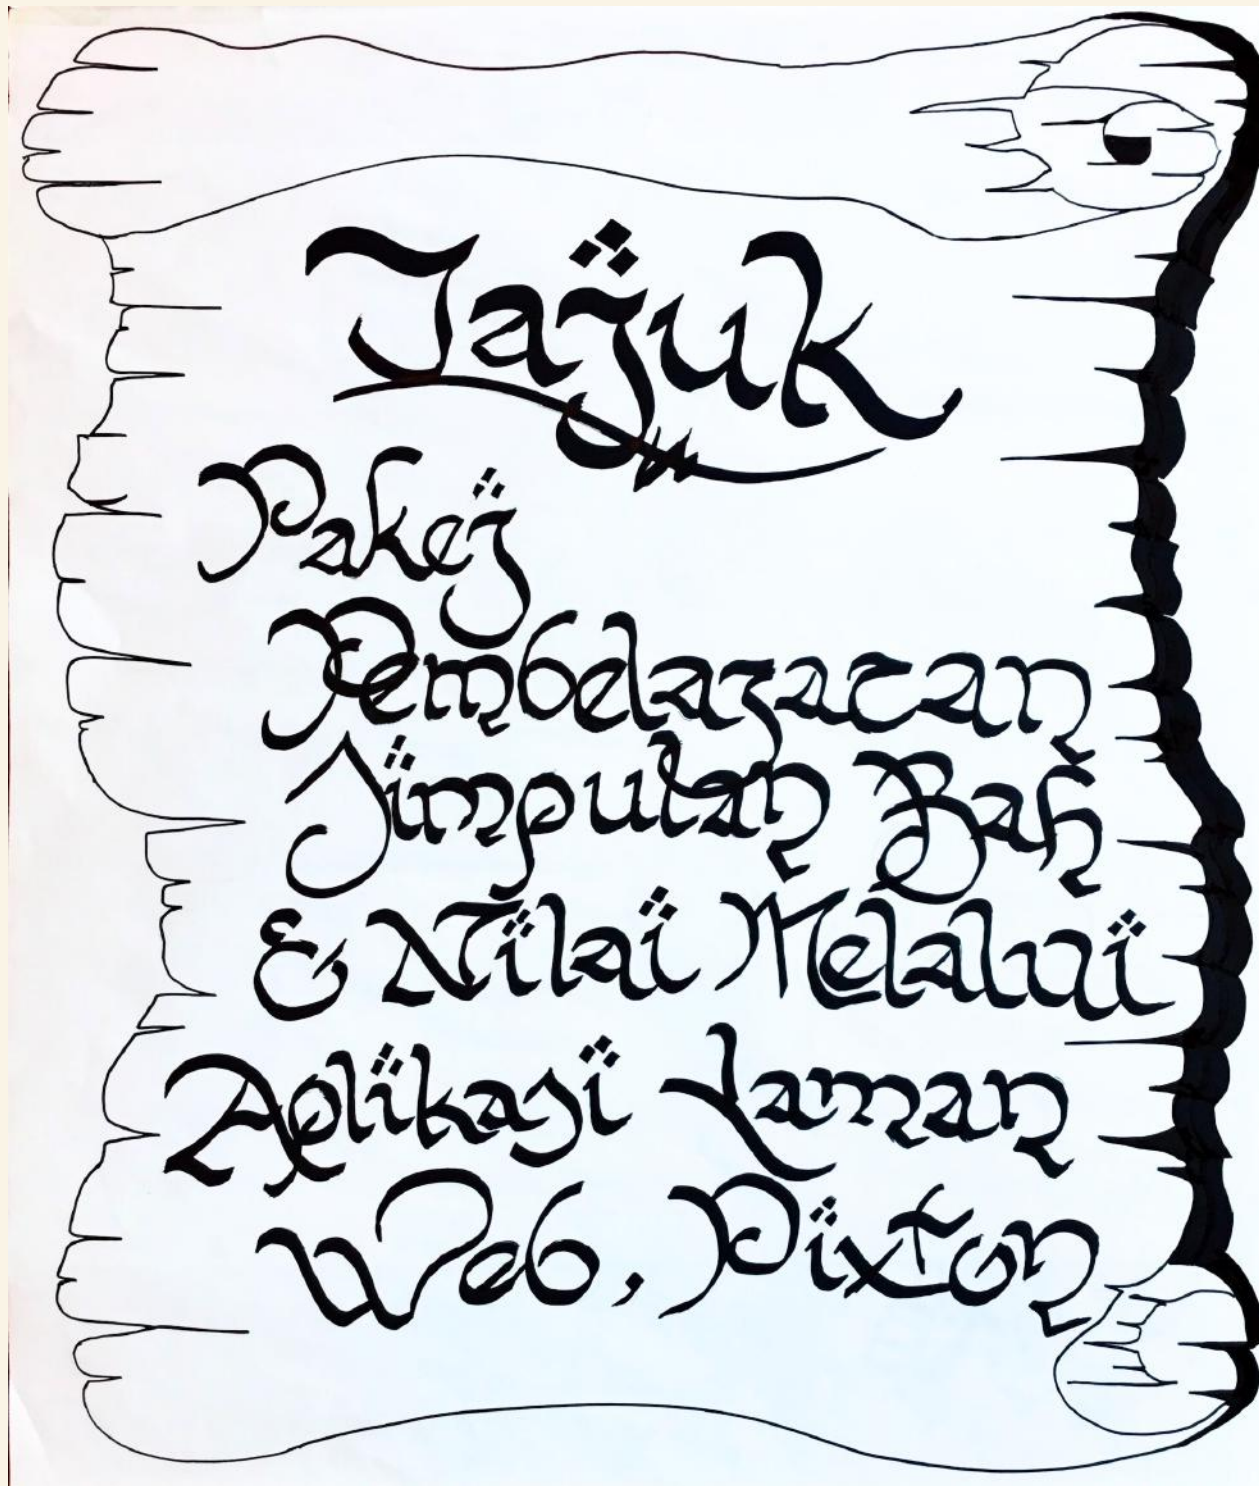 Tajuk
Pakej
Pembelajaran
Simpulan Bah
& Nilai Melalui
Aplikasi Laman
Web, Pixton